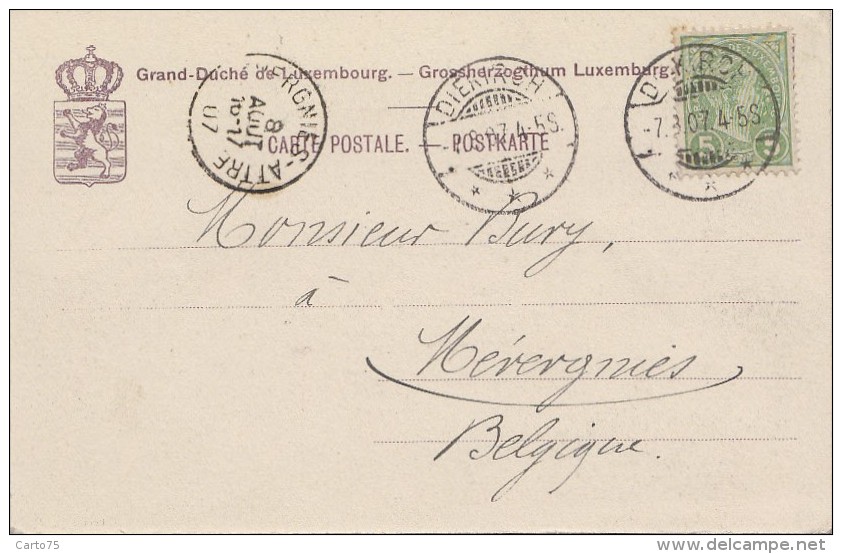 Grand-Duché de Luxembourg. — Grossherzogthum Luxemburg.
CARTE POSTALE. — POSTKARTE
MÉVERGNIES-ATTRE
8
AOUT
16-17
07
DIEKIRCH
-7.8.07. 4-5S.
DIEKIRCH
-7.8.07. 4-5S
5 5
Monsieur Bury,
à
Mévergnies
Belgique.
Carto75
delcampe.net